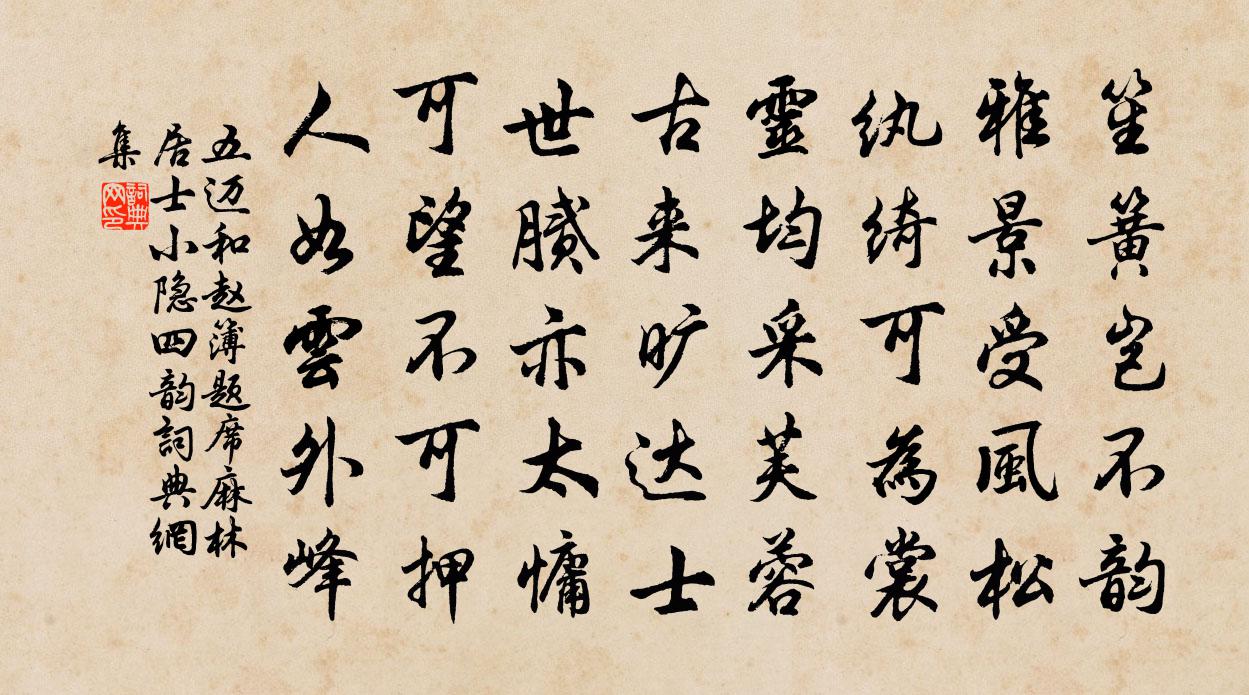 笙簧岂不韵
雅景受風松
纨绮可為裳
靈均采芙蓉
古来旷达士
世腻亦太慵
可望不可押
人如雲外峰
五迈和赵簿题席麻林
居士小隐四韵詞典網
集
詞典網印